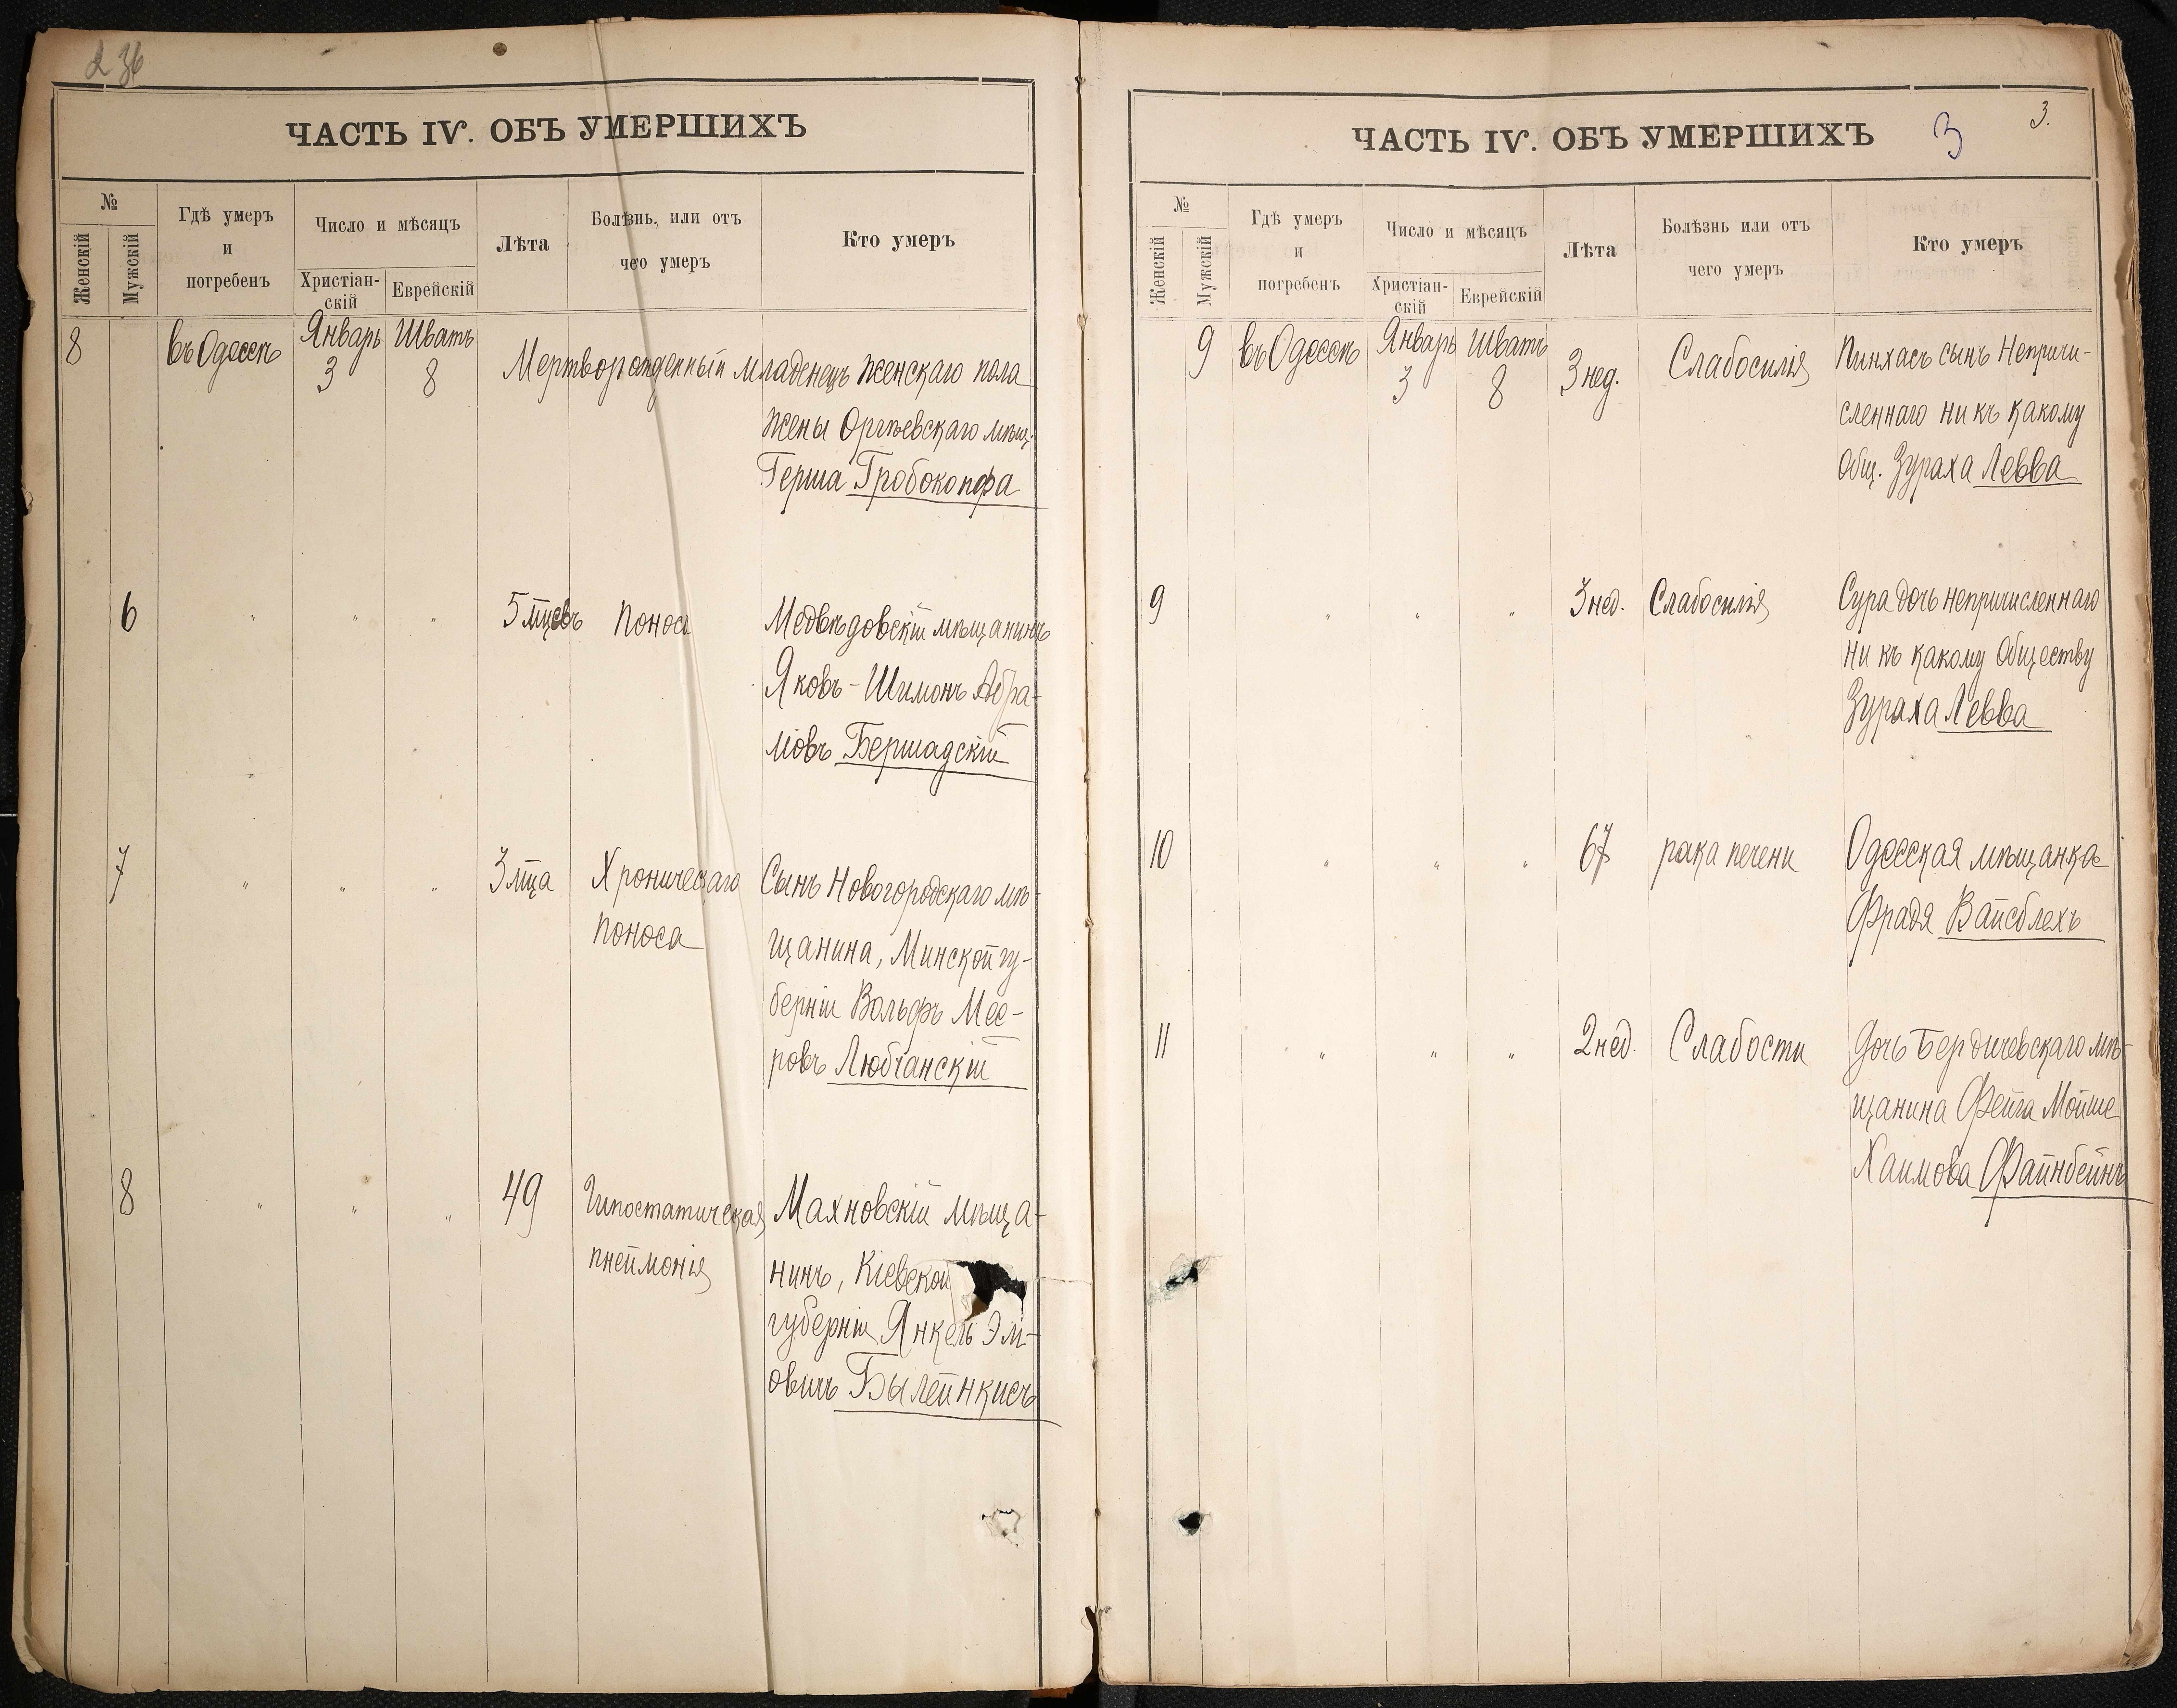 236
ЧАСТЬ IV. ОБЪ УМЕРШИХЪ
№
Женскій
Мужскій
Гдѣ умеръ
и
погребенъ
Число и мѣсяцъ
Христіан-
скій
Еврейскій
Лѣта
Болѣзнь, или отъ
чего умеръ
Кто умеръ
8 въ Одессѣ Январь 3 Шватъ 8 Мертворожденный младенецъ женскаго пола
жены Оргѣевскаго мѣщ.
Герша Гробокопфа
6 " " " 5 мцевъ Поноса Медвѣдовскій мѣщанинъ
Яковъ-Шимонъ Абра-
мовъ Бершадскій
7 " " " 3 мца Хроническаго Сынъ Новогородскаго мѣ-
поноса щанина, Минской гу-
берніи Вольфъ Мее-
ровъ Любчанскій
8 " " " 49 Гипостатическая Махновскій мѣща-
пнеймонія нинъ, Кіевской
губерніи Янкель Эли-
овичъ Былейнкисъ
ЧАСТЬ IV. ОБЪ УМЕРШИХЪ 3 3.
№
Женскій
Мужскій
Гдѣ умеръ
и
погребенъ
Число и мѣсяцъ
Христіан-
скій
Еврейскій
Лѣта
Болѣзнь или отъ
чего умеръ
Кто умеръ
9 въ Одессѣ Январь 3 Шватъ 8 3 нед. Слабосилія Пинхасъ сынъ Непричи-
сленнаго ни къ какому
Общ. Зураха Левва
9 " " " 3 нед. Слабосилія Сура дочь непричисленнаго
ни къ какому Обществу
Зураха Левва
10 " " " 67 рака печени Одесская мѣщанка
Фрадя Вайсблехъ
11 " " " 2 нед. Слабости Дочь Бердичевскаго мѣ-
щанина Фейга Мойше
Хаимова Файнбейнъ